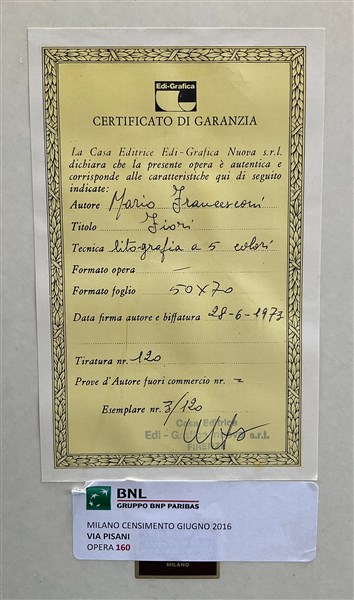 Edi-Grafica
CERTIFICATO DI GARANZIA
La Casa Editrice Edi-Grafica Nuova s.r.l.
dichiara che la presente opera è autentica e
corrisponde alle caratteristiche qui di seguito
indicate:
Autore Mario Francesconi
Titolo Fiori
Tecnica litografia a 5 colori
Formato opera —
Formato foglio 50x70
Data firma autore e biffatura 28-6-1973
Tiratura nr. 120
Prove d'Autore fuori commercio nr. -
Esemplare nr. 3/120
Casa Editrice
Edi - Grafica Nuova s.r.l.
BNL
GRUPPO BNP PARIBAS
MILANO CENSIMENTO GIUGNO 2016
VIA PISANI
OPERA 160
MILANO